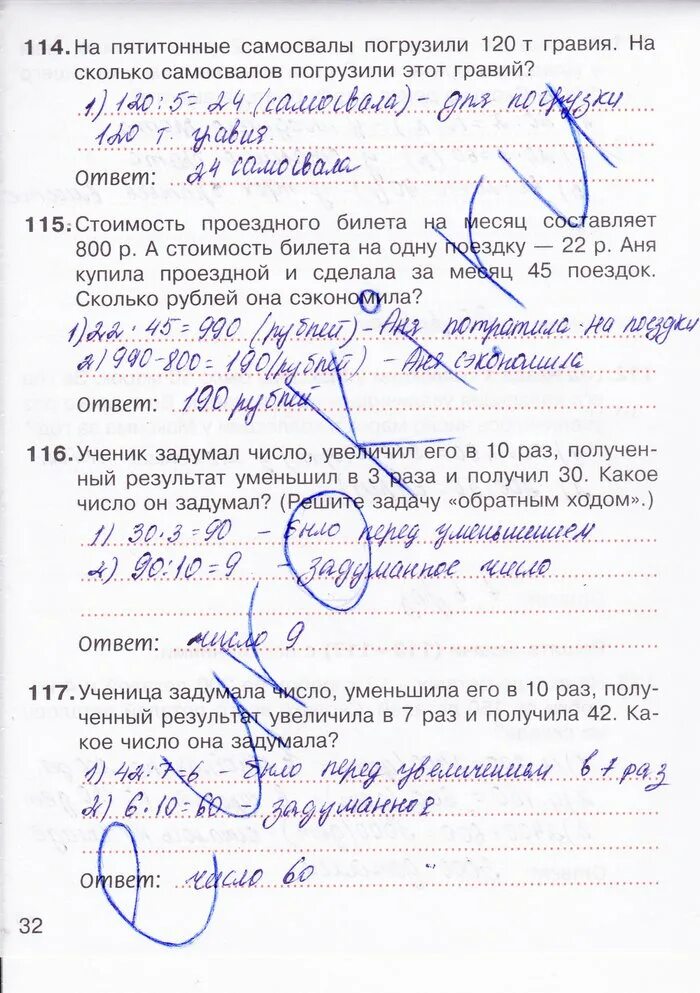 114. На пятитонные самосвалы погрузили 120 т гравия. На
сколько самосвалов погрузили этот гравий?
1) 120:5=24 (самосвала) – для погрузки
120 т. гравия.
Ответ: 24 самосвала
115. Стоимость проездного билета на месяц составляет
800 р. А стоимость билета на одну поездку — 22 р. Аня
купила проездной и сделала за месяц 45 поездок.
Сколько рублей она сэкономила?
1) 22·45=990 (рублей) – Аня потратила на поездки
2) 990-800=190 (рублей) – Аня сэкономила
Ответ: 190 рублей
116. Ученик задумал число, увеличил его в 10 раз, получен-
ный результат уменьшил в 3 раза и получил 30. Какое
число он задумал? (Решите задачу «обратным ходом».)
1) 30·3=90 – было перед уменьшением
2) 90:10=9 – задуманное число
Ответ: число 9
117. Ученица задумала число, уменьшила его в 10 раз, полу-
ченный результат увеличила в 7 раз и получила 42. Ка-
кое число она задумала?
1) 42:7=6 – было перед увеличением в 7 раз
2) 6·10=60 – задуманное
Ответ: число 60
32